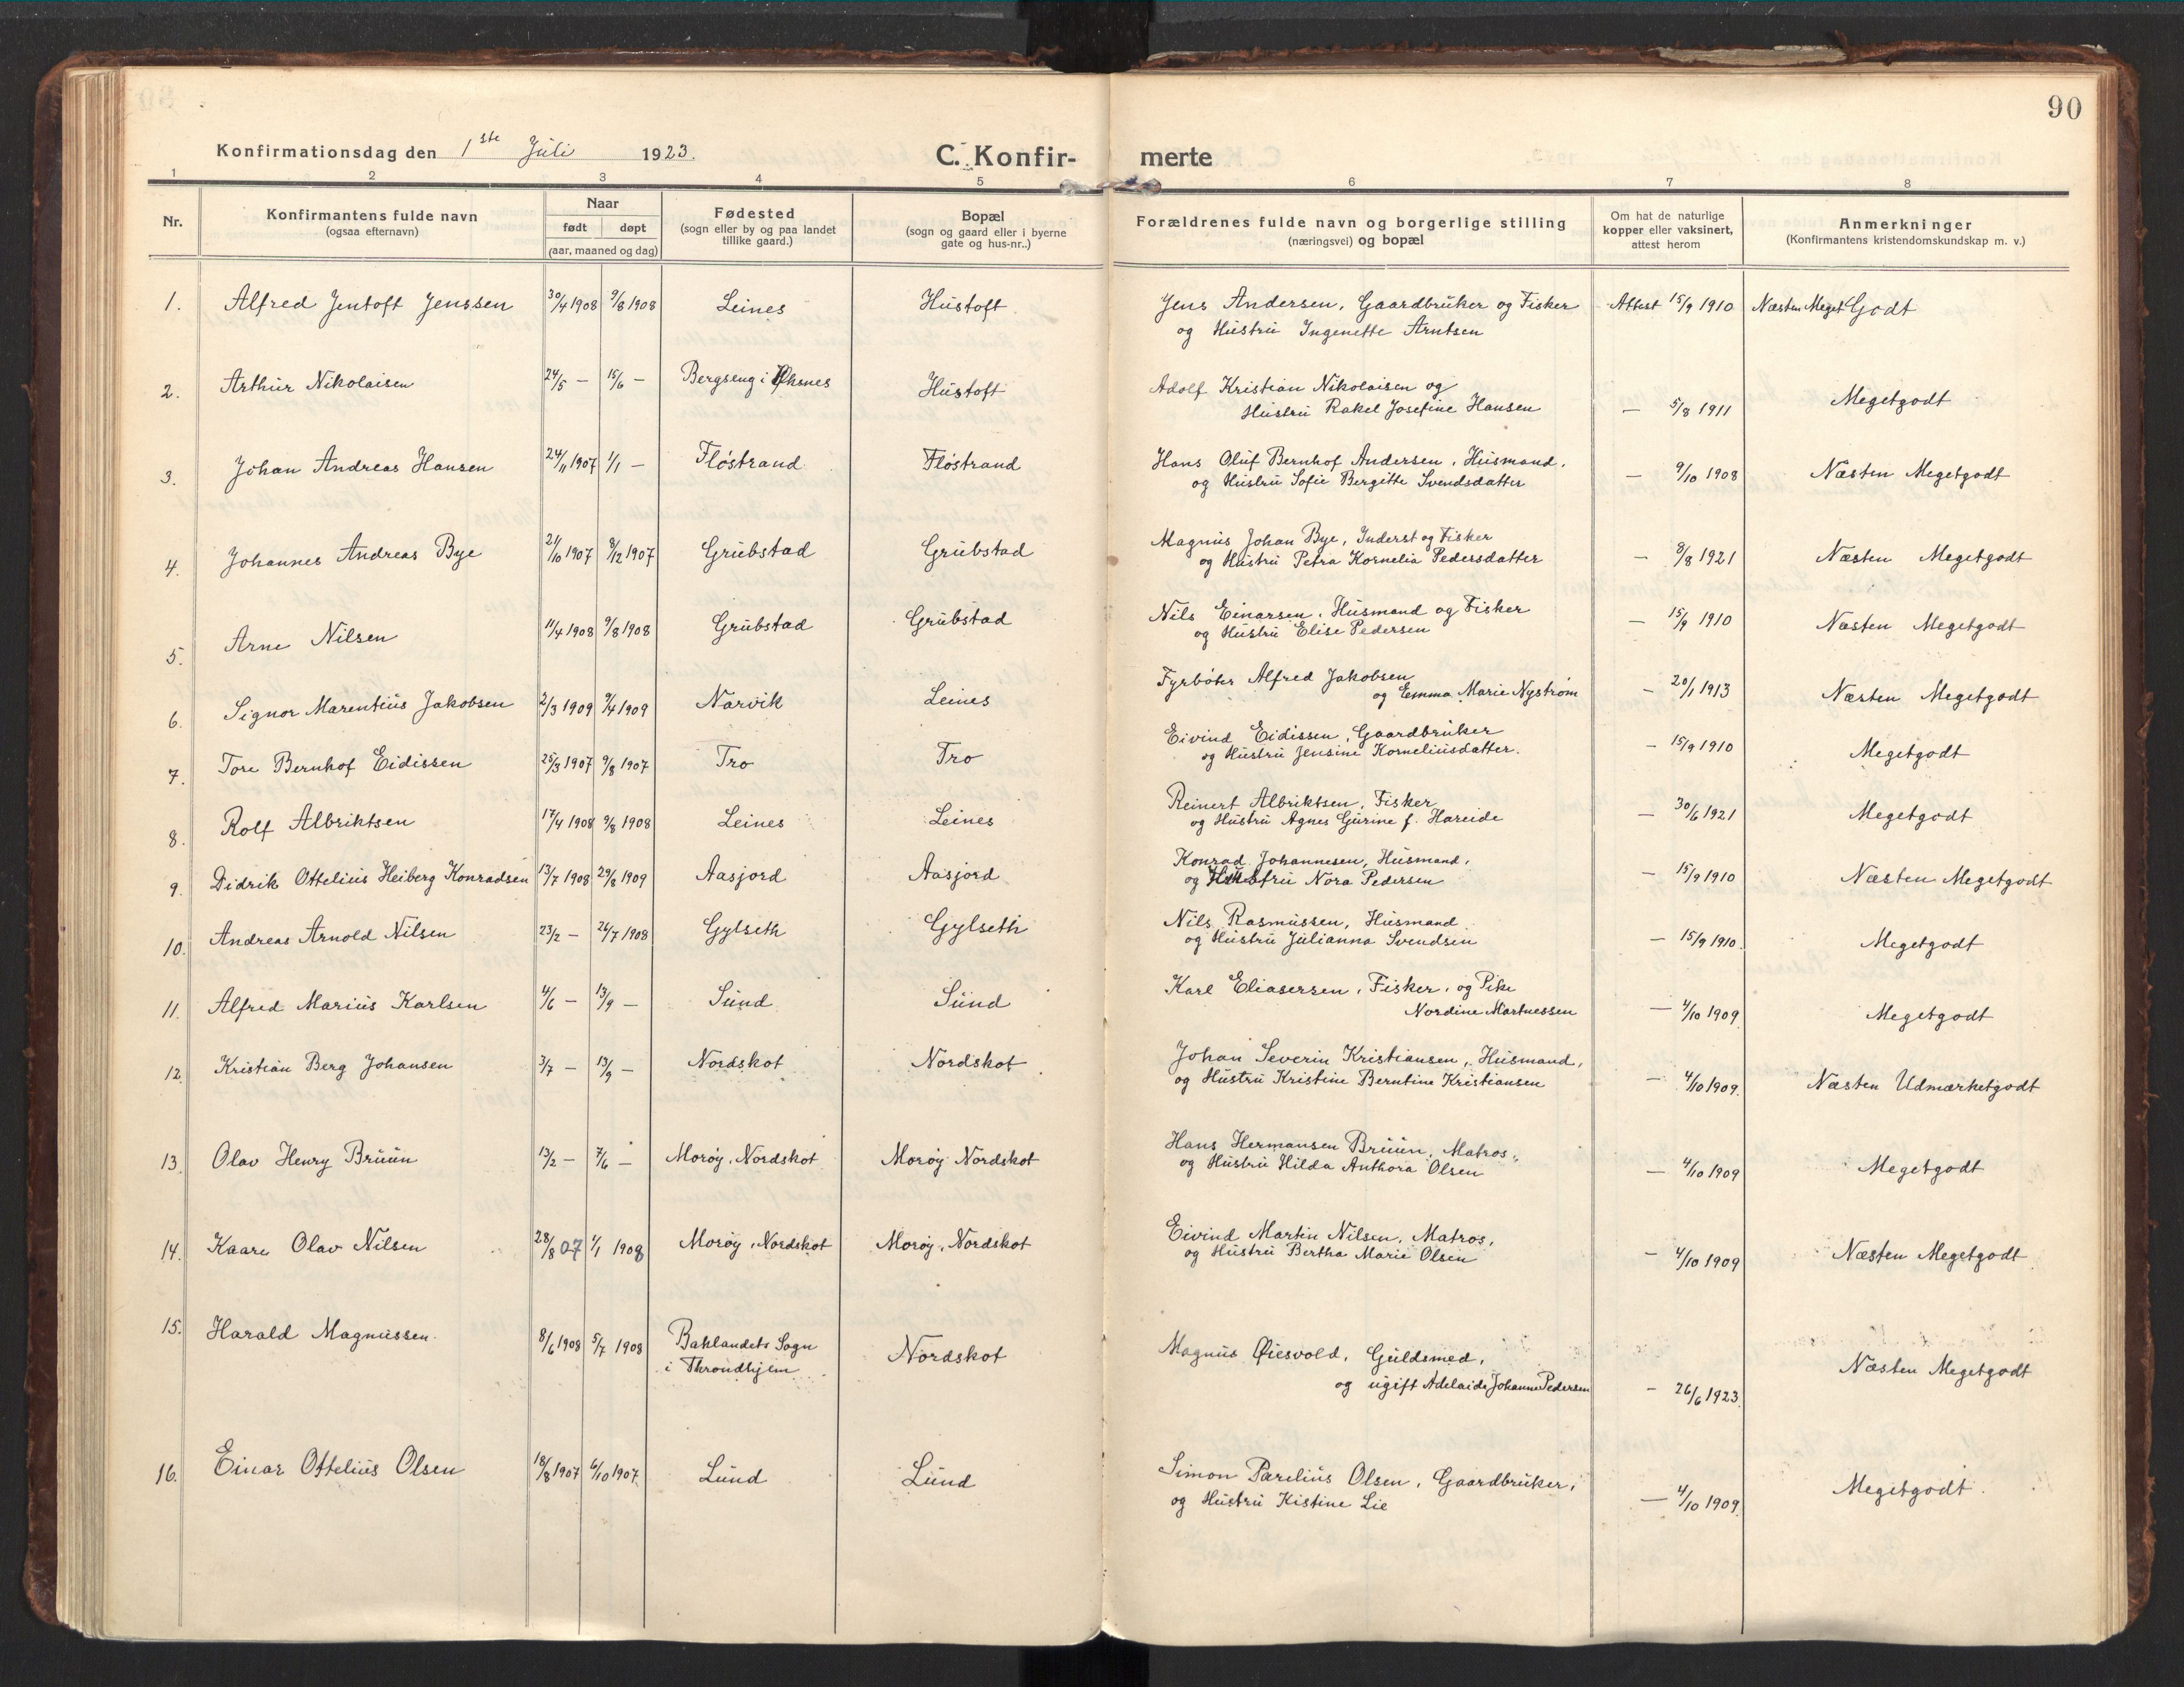 90
Konfirmationsdag den 1ste Juli 1923.
C. Konfir- merte
1 2 3 4 5 6 7 8
Nr.
Konfirmantens fulde navn
(ogsaa efternavn)
Naar
født døpt
(aar, maaned og dag)
Fødested
(sogn eller by og paa landet
tillike gaard.)
Bopæl
(sogn og gaard eller i byerne
gate og hus-nr..)
Forældrenes fulde navn og borgerlige stilling
(næringsvei) og bopæl
Om hat de naturlige
kopper eller vaksinert,
attest herom
Anmerkninger
(Konfirmantens kristendomskundskap m. v.)
1. Alfred Jentoft Jenssen 30/4 1908 9/8 1908 Leines Hustoft Jens Andersen, Gaardbruker og Fisker Attest 15/9 1910 Næsten Meget Godt
og Hustru Ingenette Arntsen
2. Arthur Nikolaisen 24/5 — 15/6 — Bergseng i Øksnes Hustoft Adolf Kristian Nikolaisen og
Hustru Rakel Josefine Hansen — 5/8 1911 Megetgodt
3. Johan Andreas Hansen 24/11 1907 1/1 — Fløstrand Fløstrand Hans Oluf Bernhof Andersen, Husmand,
og Hustru Sofie Bergitte Svendsdatter — 9/10 1908 Næsten Megetgodt
4. Johannes Andreas Bye 21/10 1907 8/12 1907 Grubstad Grubstad Magnus Johan Bye, Inderst og Fisker
og Hustru Petra Kornelia Pedersdatter — 8/8 1921 Næsten Megetgodt
5. Arne Nilsen 11/4 1908 9/8 1908 Grubstad Grubstad Nils Einarsen, Husmand og Fisker
og Hustru Elise Pedersen — 15/9 1910 Næsten Megetgodt
6. Signor Marentius Jakobsen 2/3 1909 9/4 1909 Narvik Leines Fyrbøter Alfred Jakobsen
og Emma Marie Nystrøm — 20/1 1913 Næsten Megetgodt
7. Tore Bernhof Eidissen 25/3 1907 9/8 1907 Tro Tro Eivind Eidissen, Gaardbruker
og Hustru Jensine Korneliusdatter. — 15/9 1910 Megetgodt
8. Rolf Albriktsen 17/4 1908 9/8 1908 Leines Leines Reinert Albriktsen, Fisker
og Hustru Agnes Gurine f. Hareide — 30/6 1921 Megetgodt
9. Didrik Ottelius Heiberg Konradsen 13/7 1908 29/8 1909 Aasjord Aasjord Konrad Johannesen, Husmand,
og Hustru Nora Pedersen — 15/9 1910 Næsten Megetgodt
10. Andreas Arnold Nilsen 23/2 — 26/7 1908 Gylseth Gylseth Nils Rasmussen, Husmand
og Hustru Julianna Svendsen — 15/9 1910. Megetgodt
11. Alfred Marius Karlsen 4/6 — 13/9 — Sund Sund Karl Eliasersen, Fisker, og Pike
Nordine Martnessen — 4/10 1909 Megetgodt
12. Kristian Berg Johansen 3/7 — 13/9 — Nordskot Nordskot Johan Severin Kristiansen, Husmand,
og Hustru Kristine Berntine Kristiansen — 4/10 1909. Næsten Udmærketgodt
13. Olav Henry Bruun 13/2 — 7/6 — Morøy, Nordskot Morøy Nordskot Hans Hermansen Bruun, Matros,
og Hustru Hilda Anthora Olsen — 4/10 1909 Megetgodt
14. Kaare Olav Nilsen 28/8 07 1/1 1908 Morøy, Nordskot Morøy, Nordskot Eivind Martin Nilsen, Matros,
og Hustru Bertha Marie Olsen — 4/10 1909 Næsten Megetgodt
15. Harald Magnussen. 8/6 1908 5/7 1908 Baklandets Sogn
i Throndhjem Nordskot Magnus Øiesvold, Guldsmed,
og ugift Adelaide Johanne Pedersen — 26/6 1923. Næsten Megetgodt
16. Einar Ottelius Olsen 18/8 1907 6/10 1907. Lund Lund Simon Parelius Olsen, Gaardbruker,
og Hustru Kistine Lie — 4/10 1909. Megetgodt.